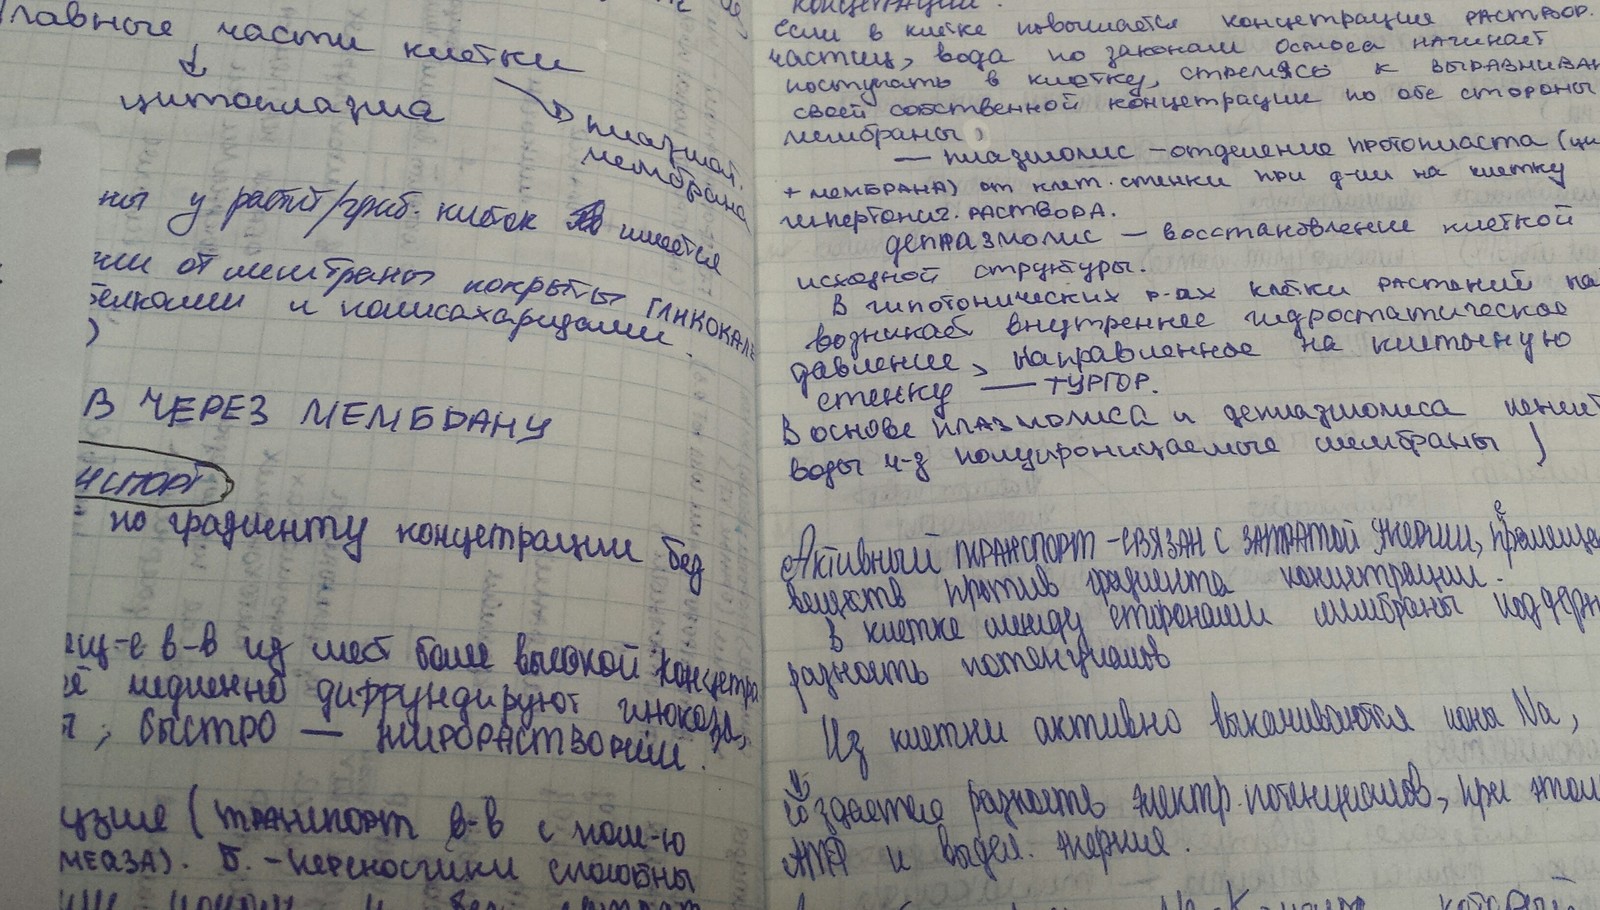 Главные части клетки
цитоплазма
плазмат.
мембрана
ны у растит/гриб. клеток имеется
от мембраны покрыты ГЛИКОКАЛ
белками и полисахаридами.
)
В ЧЕРЕЗ МЕМБРАНУ
нспорт
по градиенту концетрации без
ещ-е в-в из мест более высокой концетра
медленно диффундируют глюкоза,
; быстро — жирорастворим.
узия (транспорт в-в с пом-ю
меаза). Б. - переносчики способны
концетрации.
если в клетке повышается концетрация раствор.
частиц, вода по законам осмоса начинает
поступать в клетку, стремясь к выравниван
своей собственной концетрации по обе стороны
мембраны.
— плазмолис - отделение протопласта (ци
+ мембрана) от клет. стенки при д-ии на клетку
гипертонич. раствора.
деплазмолис — восстановление клеткой
исходной структуры.
В гипотонических р-ах клетки растений на
возникает внутреннее гидростатическое
давление, направленное на клеточную
стенку — ТУРГОР.
В основе плазмолиса и деплазмолиса лежит
воды ч-з полупроницаемые мембраны
Активный транспорт - связан с затратой энергии, премеще
е
веществ против градиента концетрации.
В клетке между сторонами мембраны поддерж
разность потенциалов
Из клетки активно выкачиваются ионы Na,
создается разность электр. потенциалов, при этом
АТФ и выдел. энергия.